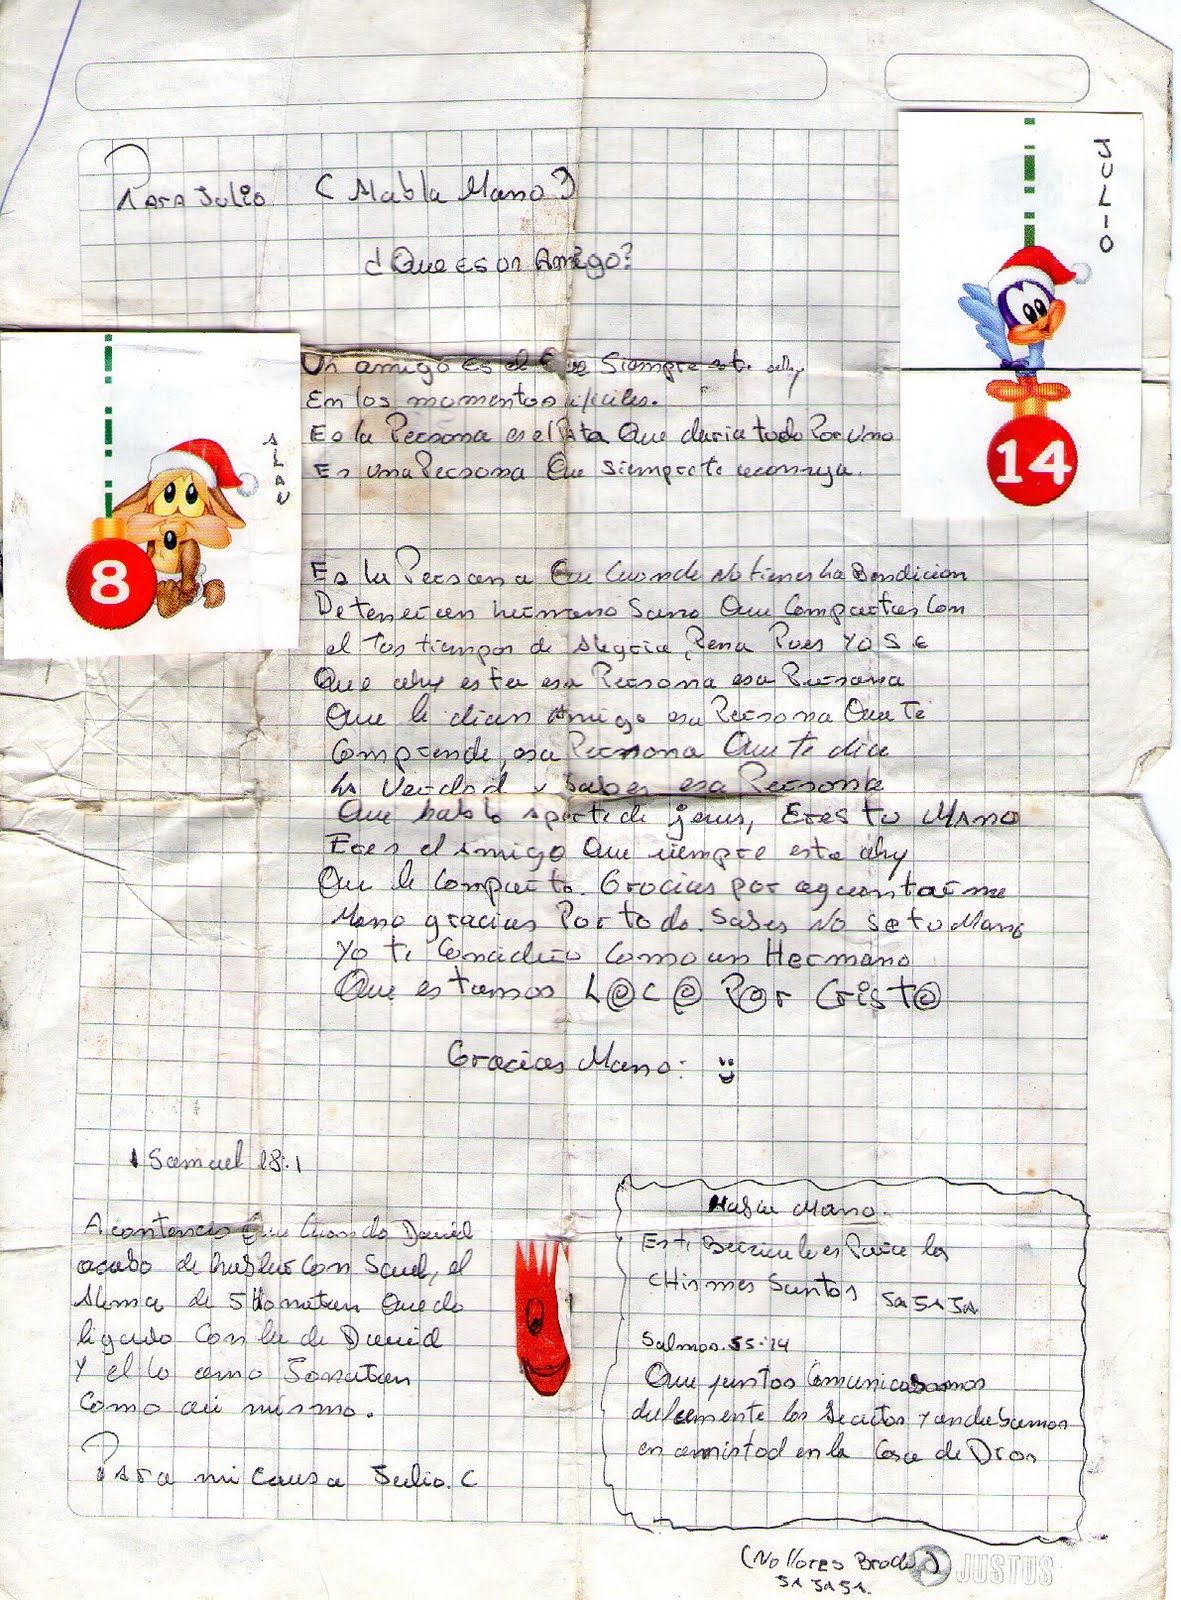 Para Julio (Habla Mano)
JULIO
¿Que es un Amigo?
14
Un amigo es el que Siempre esta ahy
En los momentos
Es la Persona es el Pata Que daria todo Por Uno
Es una Persona Que Siempre te
ALAN
8
Es la Persona Que Cuando No tienes La Bendicion
De tener un hermano Sano Que Compartas Con
el Tus tiempos de Alegria, Pena Pues Yo Se
Que ahy esta esa Persona esa Persona
Que le dicen Amigo esa Persona Que Te
Comprende, esa Persona Que te dice
La Verdad y sabes esa Persona
Que hablo aparte de jesus, Eres tu Mano
Eres el Amigo Que siempre esta ahy
Que le Comparto. Gracias por aguantarme
Mano gracias Por todo. Sabes No se tu Mano
Yo te Concidero Como un Hermano
Que estamos L@C@ P@r Crist@
Gracias Mano:
1 Samuel 18:1
Acontencio Que Cuando David
acabo de hablar Con Saul, el
Alma de Jhonatan Quedo
ligado Con la de David
Y el lo amo Jonatan
Como asi mismo.
Para mi Causa Julio. C
Mano.
Este es Para los
CHismes Santos JAJAJA
Salmos. 55:14
Que juntos Comunicabamos
dulcemente los Secretos Y andabamos
en amistad en la Casa de Dios
(No llores Brother)
JA JAJA.
JUSTUS